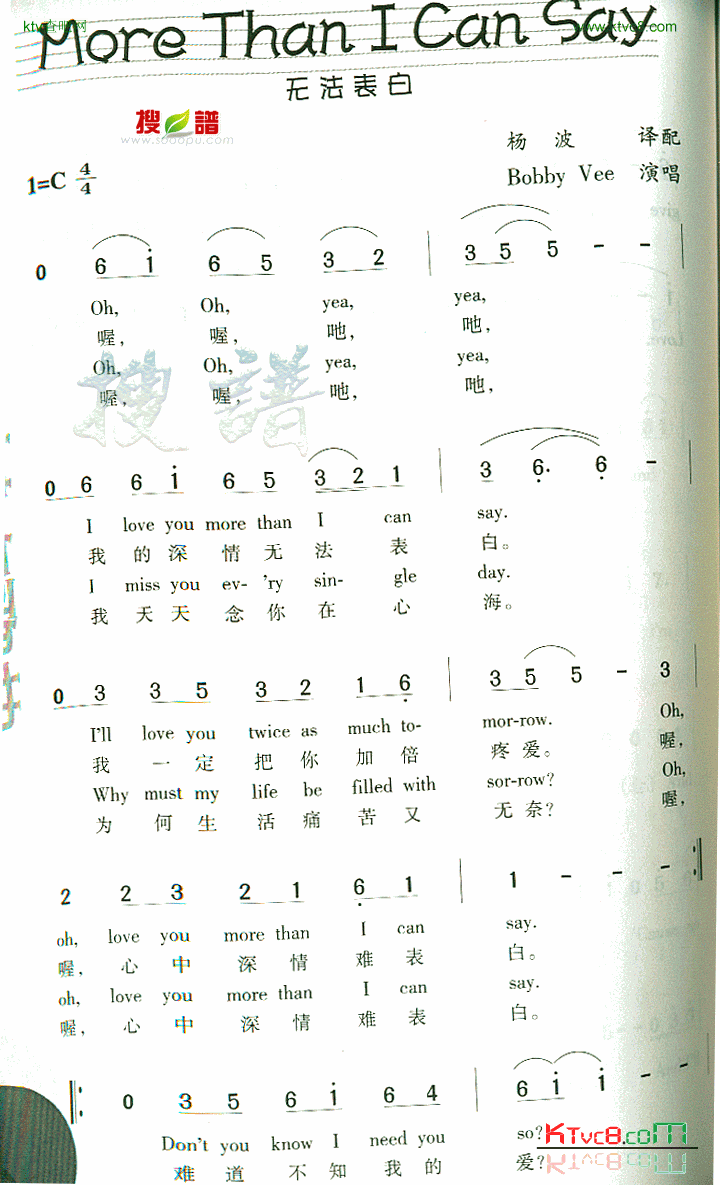 ktv歌谱网
www.ktvc8.com
More Than I Can Say
无法表白
搜谱
www.sooopu.com
杨 波 译配
1=C 4/4
Bobby Vee 演唱
give
0 6 i 6 5 3 2 3 5 5 - -
Oh, Oh, yea, yea,
喔, 喔, 吔, 吔,
Oh, Oh, yea, yea,
喔, 喔, 吔, 吔,
搜谱
0 6 6 i 6 5 3 2 1 3 6. 6 -
I love you more than I can say.
我 的 深 情 无 法 表 白。
I miss you ev- 'ry sin- gle day.
我 天 天 念 你 在 心 海。
0 3 3 5 3 2 1 6 3 5 5 - 3
I'll love you twice as much to- mor-row. Oh,
我 一 定 把 你 加 倍 疼 爱。 喔,
Why must my life be filled with sor-row? Oh,
为 何 生 活 痛 苦 又 无 奈? 喔,
2 2 3 2 1 6 1 1 - - -
oh, love you more than I can say.
喔, 心 中 深 情 难 表 白。
oh, love you more than I can say.
喔, 心 中 深 情 难 表 白。
0 3 5 6 i 6 4 6 i i - -
Don't you know I need you so?
难 道 不 知 我 的 爱?
KTvc8.com